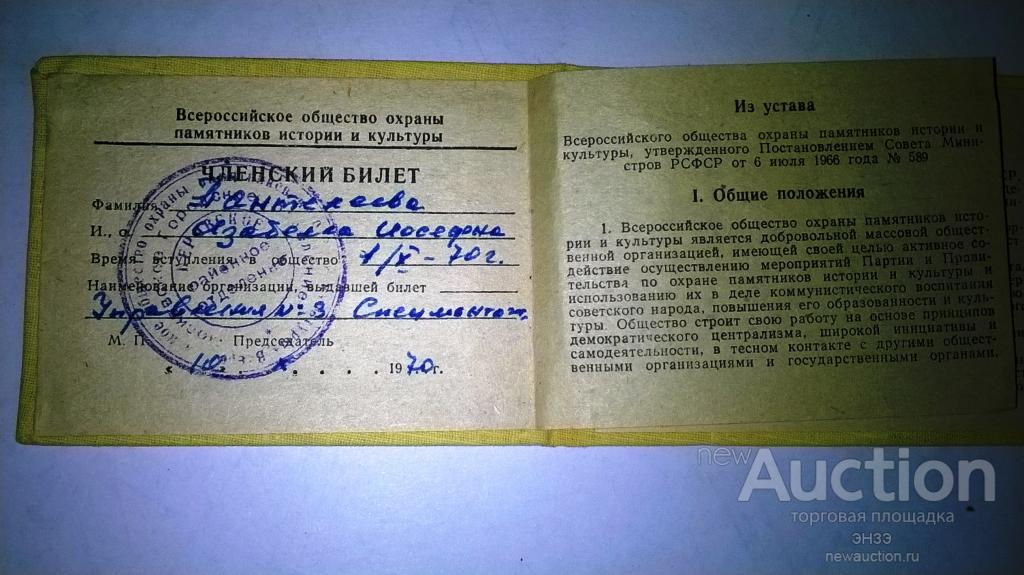 Всероссийское общество охраны
памятников истории и культуры
ЧЛЕНСКИЙ БИЛЕТ
Фамилия Пантелеева
И., о. Изабелла Иосефна
Время вступления в общество 1/X-70г.
Наименование организации, выдавшей билет
Управления №3 Спецмонтаж
М. П. Председатель
10. X 1970 г.
Из устава
Всероссийского общества охраны памятников истории и
культуры, утвержденного Постановлением Совета Мини-
стров РСФСР от 6 июля 1966 года № 589
I. Общие положения
1. Всероссийское общество охраны памятников исто-
рии и культуры является добровольной массовой общест-
венной организацией, имеющей своей целью активное со-
действие осуществлению мероприятий Партии и Прави-
тельства по охране памятников истории и культуры и
использованию их в деле коммунистического воспитания
советского народа, повышения его образованности и куль-
туры. Общество строит свою работу на основе принципов
демократического централизма, широкой инициативы и
самодеятельности, в тесном контакте с другими общест-
венными организациями и государственными органами.
newAuction
торговая площадка
ЭНЗЭ
newauction.ru